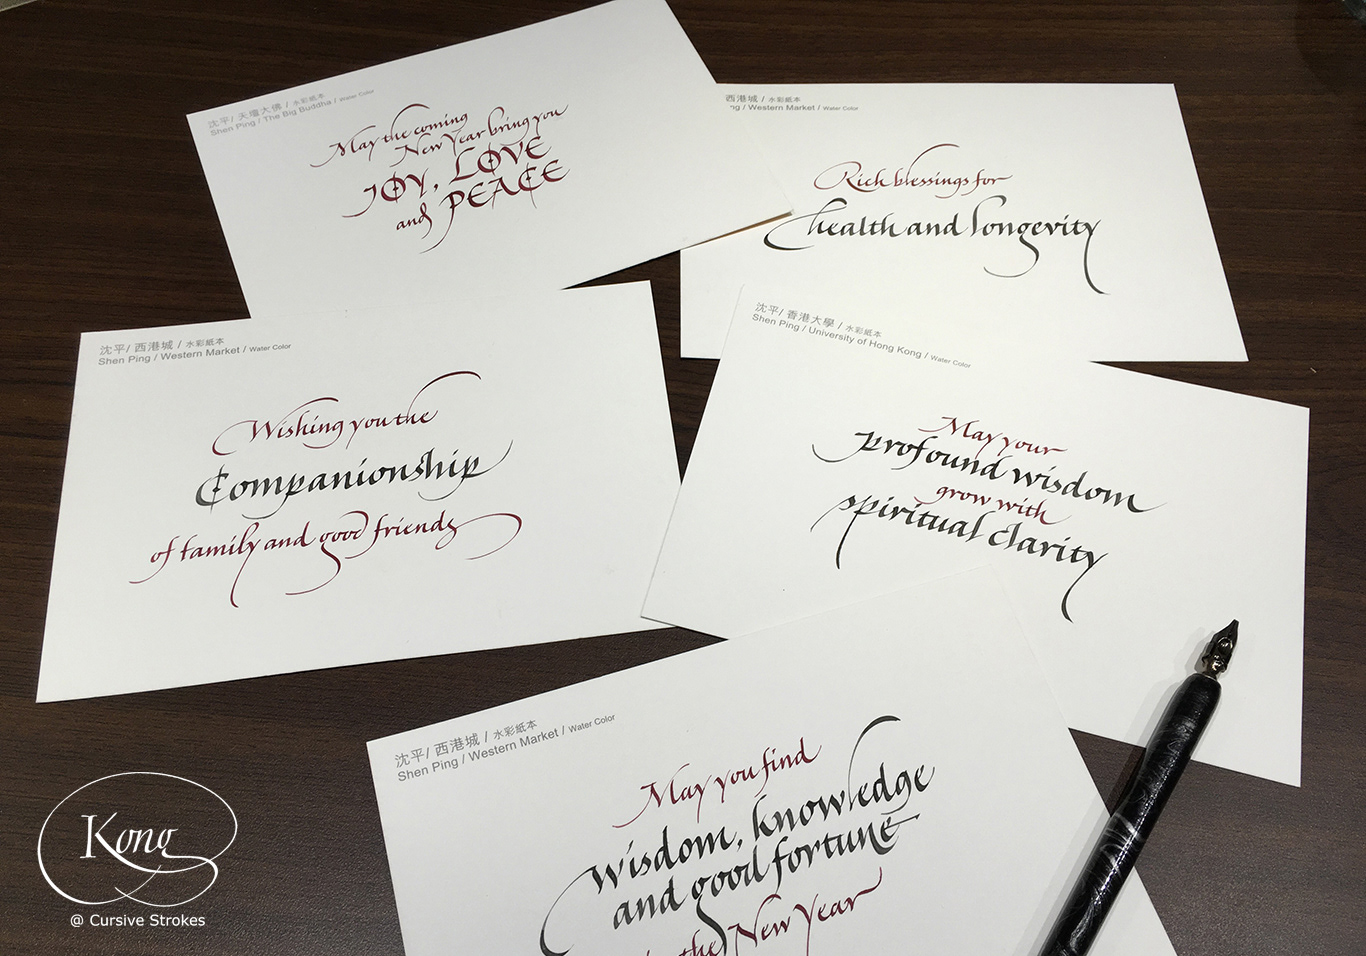 沈平/ 天壇大佛 / 水彩紙本
Shen Ping / The Big Buddha / Water Color
May the coming
New Year bring you
JOY, LOVE
and PEACE
西港城 / 水彩紙本
/ Western Market / Water Color
Rich blessings for
health and longevity
沈平/ 西港城 / 水彩紙本
Shen Ping / Western Market / Water Color
Wishing you the
Companionship
of family and good friends
沈平/ 香港大學 / 水彩紙本
Shen Ping / University of Hong Kong / Water Color
May your
profound wisdom
grow with
spiritual clarity
沈平/ 西港城 / 水彩紙本
Shen Ping / Western Market / Water Color
May you find
wisdom, knowledge
and good fortune
the New Year
Kong
@ Cursive Strokes